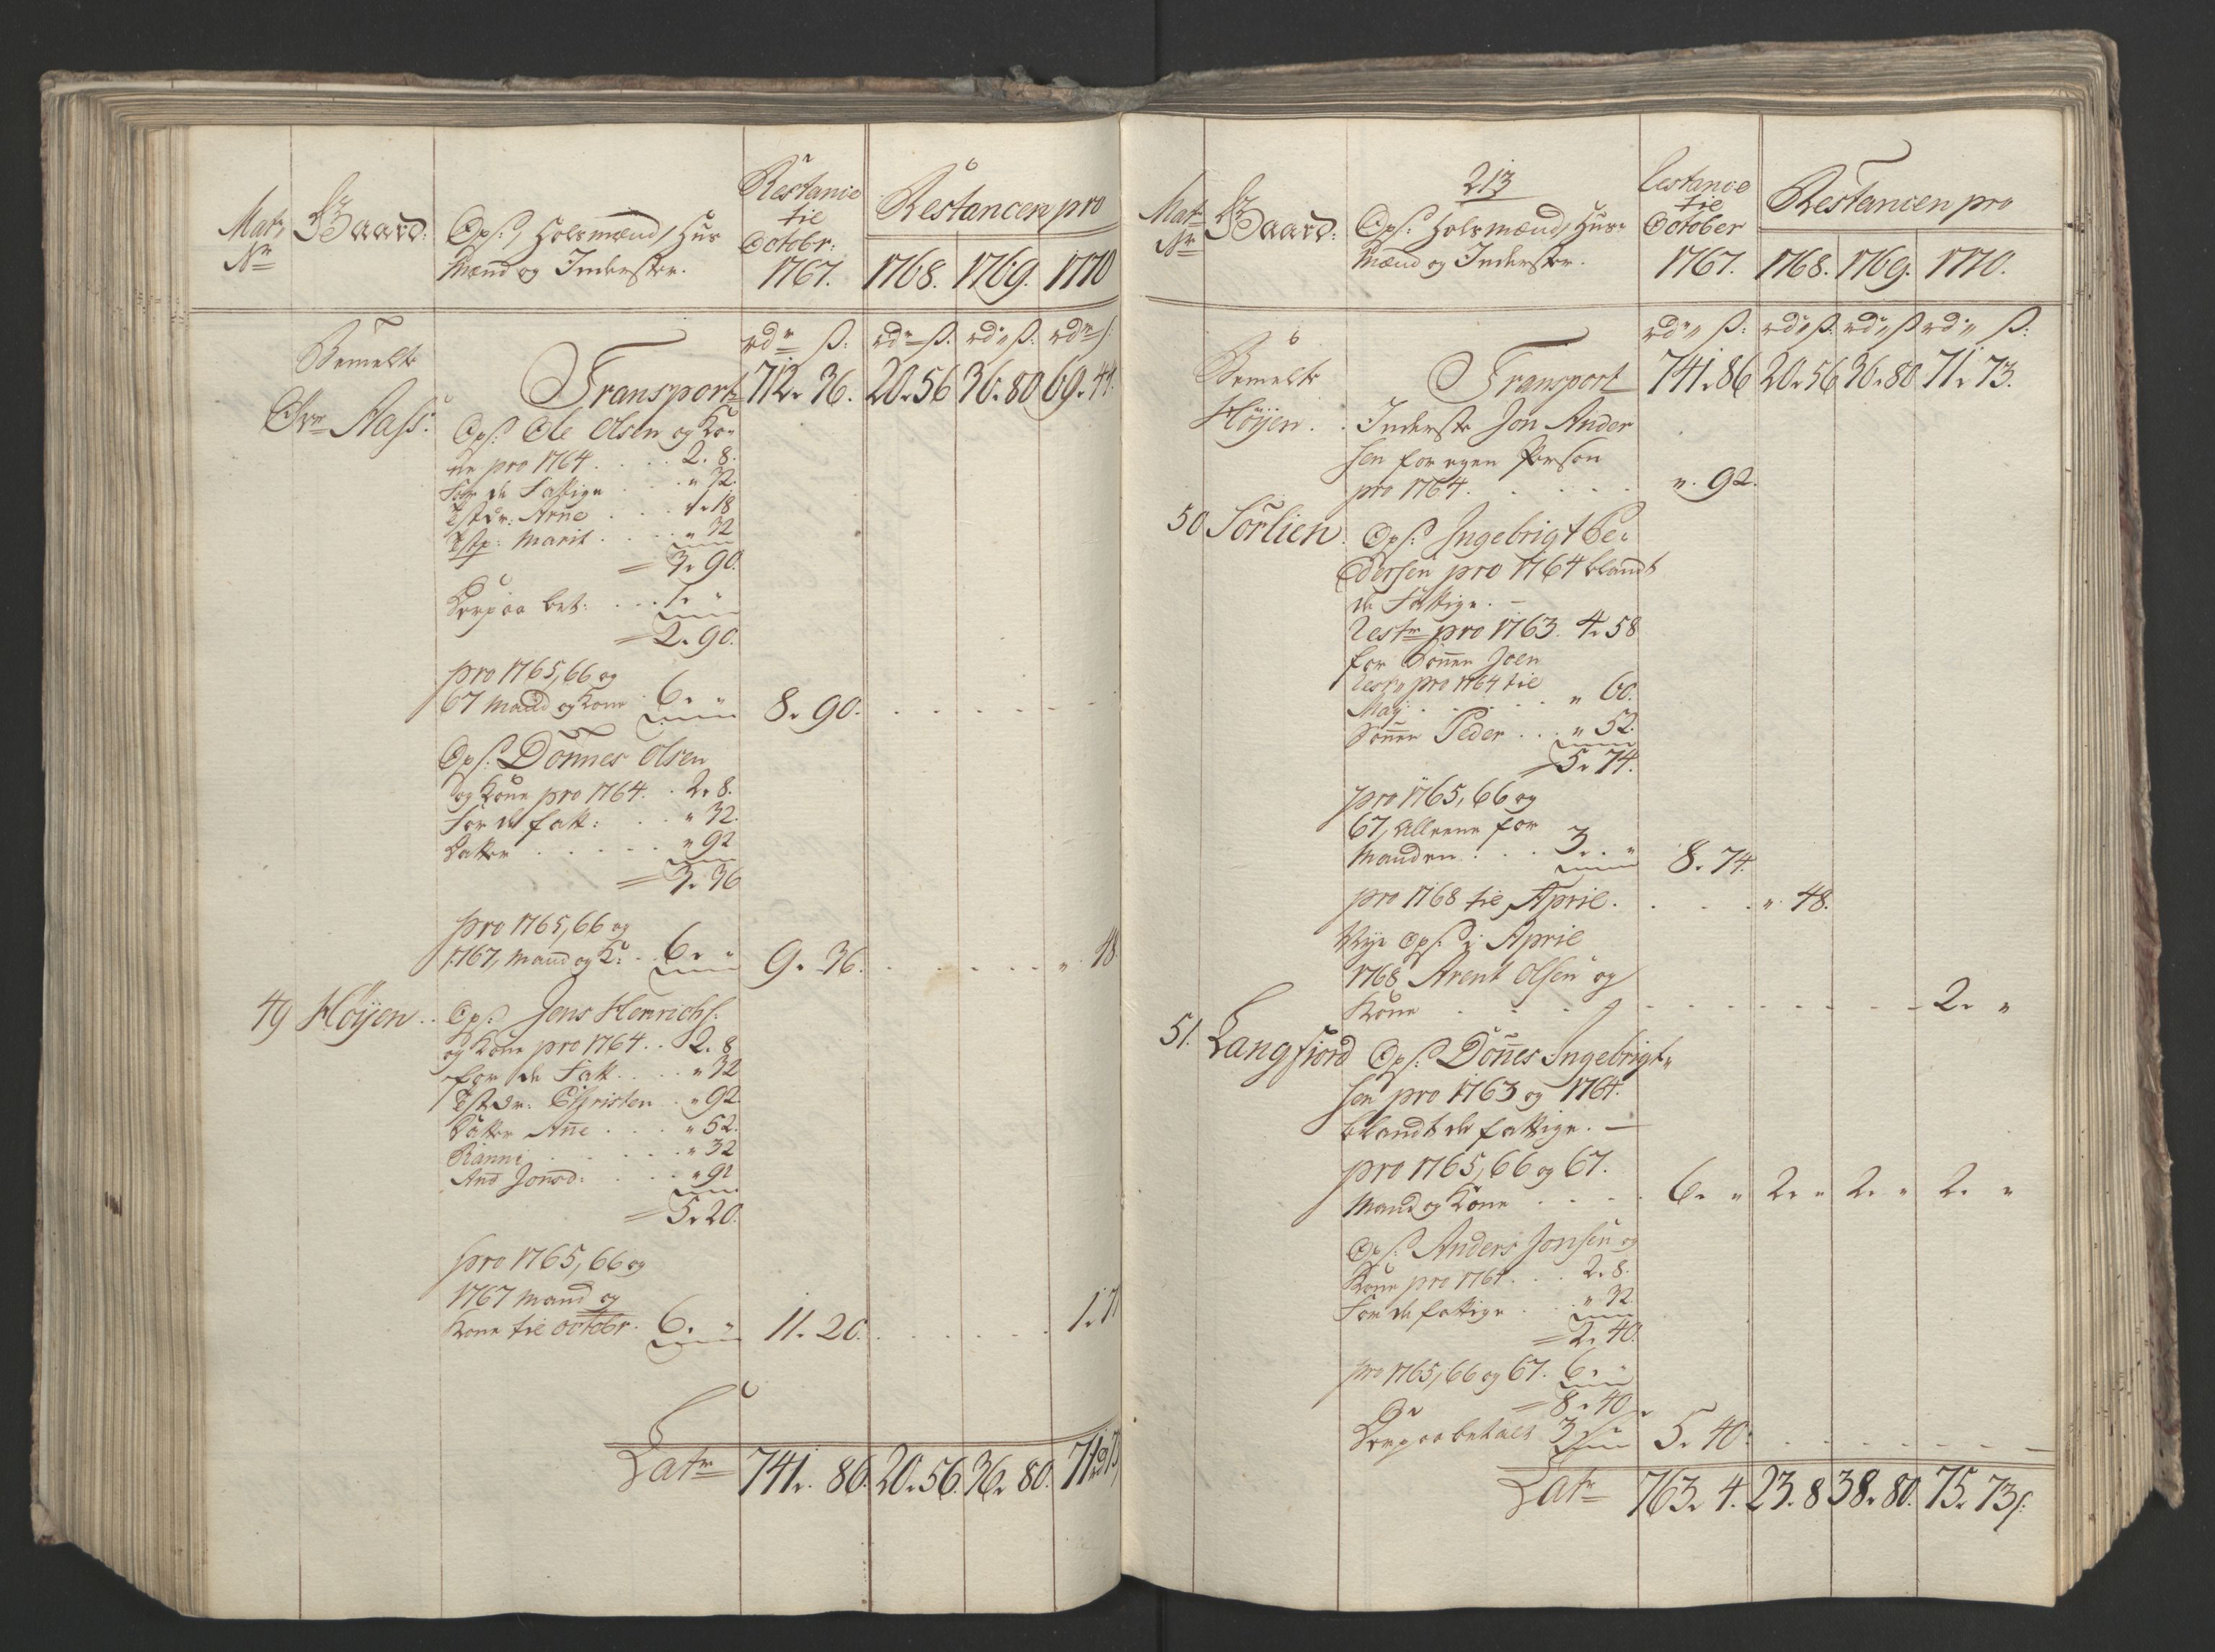 Matr Nr
Gaard:
Ops: Holsmænd, Huus
mænd og Inderster.
Restance
til
Octobr:
1767.
Restancen pro
1768. 1769. 1770
rdr ß: rdr ß. rdr ß. rdr ß
Bemelte
Transport 712. 36. 20. 56 36. 80 69. 44.
Øvre Aass:
Ops: Ole Olsen og Ko-
ne pro 1764 . . . . 2. 8.
For de Fattige . . . " 32.
Tstdr: Arne . . . 1. 18
Tstp: Marit . . . . " 32
= 3. 90.
Derpaa bet: . . . 1. "
= 2. 90.
pro 1765, 66 og
67 Mand og Kone . 6. " 8. 90. . . . . . .
Ops: Dönnes Olsen
og Kone pro 1764. . 2. 8.
For de fatt: . . . " 32.
Datter . . . . . . " 92
= 3. 36
pro 1765, 66 og
1767, Mand og K: . . 6. " 9. 36. . . . . . . ". 48
49 Höyen . . Ops: Jens Henrichs:
og Kone pro 1764 . . 2. 8
for de Fatt . . . . " 32
Tstdr: Christen . " 92
Datter Ane . . . " 52.
Ranni . . . . . . " 32
And Jonsd: . . . " 92
= 5. 20.
pro 1765, 66 og
1767 Mand og
Kone til octobr. 6. " 11. 20. . . . . . . 1. 77
Latr 741. 86. 20. 56. 36. 80. 71. 73
213
Matr Nr
Gaard:
Ops: Holsmænd, Huus-
mænd og Inderster.
Restance
til
October
1767.
Restancen pro
1768. 1769. 1770.
rdr ß: rdr ß. rdr ß rdr ß:
Bemelte
Transport 741. 86 20. 56 36. 80 71. 73.
Höyen . . Inderste Jon Ander
sen for egen Person
pro 1764. . . . . . ". 92.
50 Sörlien. Ops: Ingebrigt Pe-
dersen pro 1764 blandt
de Fattige. —
Restr pro 1763. 4. 58
for Sönnen Joen
Rest: pro 1764 til
Maÿ . . . . . . " 60.
Sönnen Peder . . " 52.
5. 74.
pro 1765, 66 og
67, alleene for
Manden . . . 3. . " 8. 74.
pro 1768 til April. . . . . ". 48.
Nye Ops: i April
1768 Arent Olsen og
Kone . . . . . . . . . . . . . 2. "
51. Langfiord Ops: Dönnes Ingebrigt-
sen pro 1763 og 1764.
blandt de fattige. —
pro 1765, 66 og 67.
Mand og Kone . . . . 6. " 2. " 2. " 2. "
Ops: Anders Jonsen og
Kone pro 1764 . . . 2. 8.
For de fattige . . . " 32
= 2. 40.
pro 1765, 66 og 67. 6. "
= 8. 40.
Derpaa betalt 3. " 5. 40. . . . . . . . —
Latr 763. 4. 23. 8 38. 80. 75. 73ß: